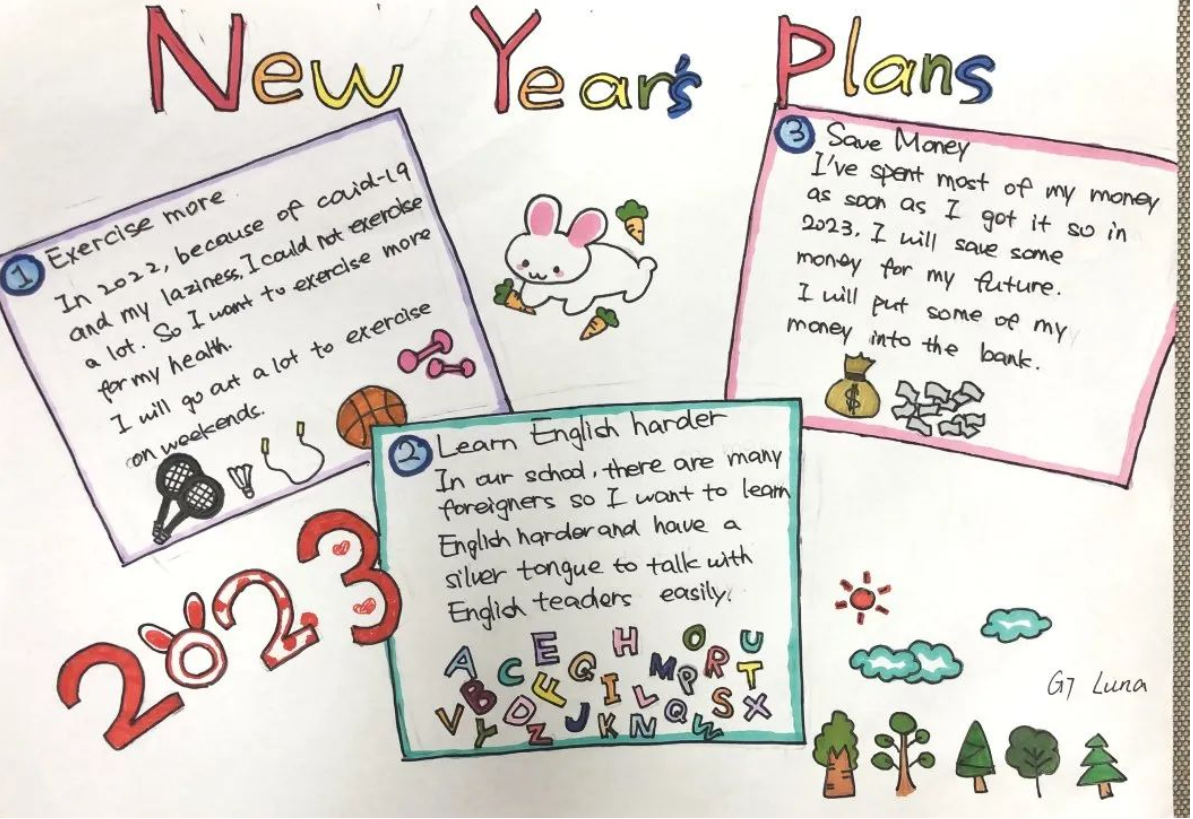 New Year's Plans
1 Exercise more
In 2022, because of covid-19
and my laziness, I could not exercise
a lot. So I want to exercise more
for my health.
I will go out a lot to exercise
on weekends.
2 Learn English harder
In our school, there are many
foreigners so I want to learn
English harder and have a
silver tongue to talk with
English teachers easily.
A C E G H I M O P R U T
B F L S X
V Y D Z J K N Q W
3 Save Money
I've spent most of my money
as soon as I got it so in
2023. I will save some
money for my future.
I will put some of my
money into the bank.
$
2023
G7 Luna